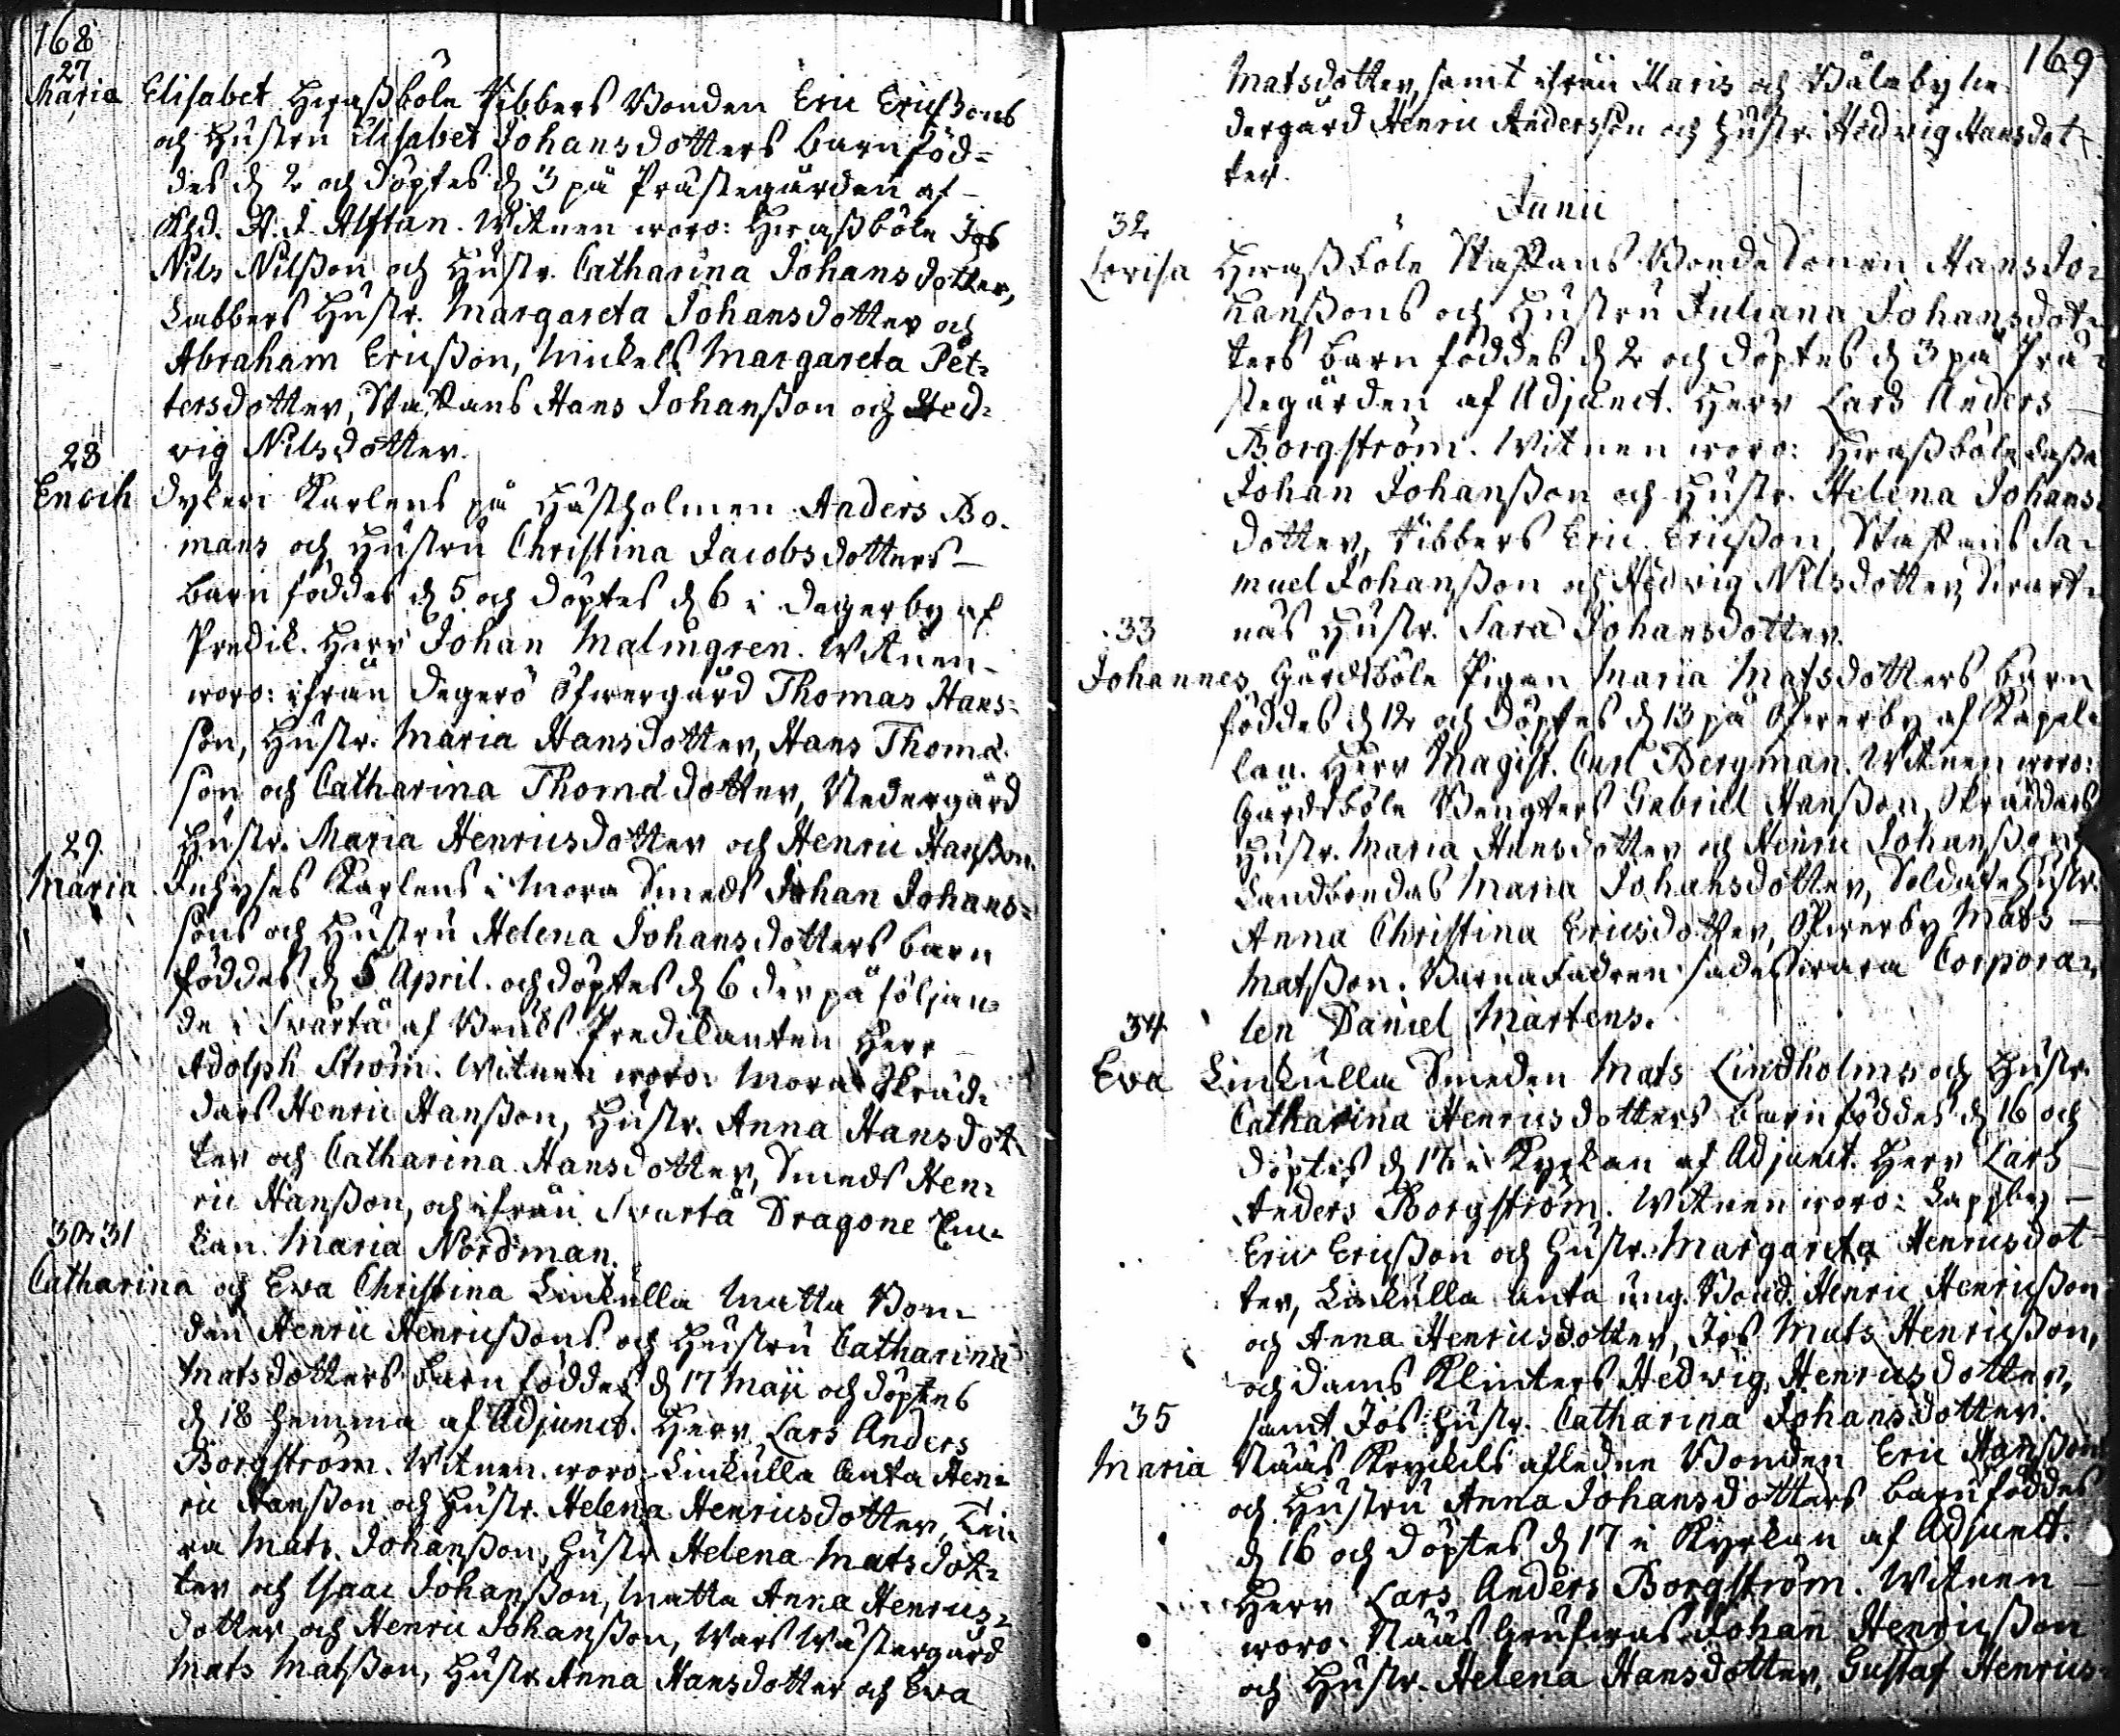 168
27
Maria Elisabet Hwaßböle Tibbers Bonden Eric Ericßons
och Hustru Elisabet Johansdotters barn föd-
des d 2 och döptes d 3 på Prästegården af
A. J. Alftan. Witnen woro: Hwaßböle Jos
Nils Nilßon och Hustr. Catharina Johansdotter,
Labbers Hustr. Margareta Johansdotter och
Abraham Ericßon, Mickels Margareta Pet-
tersdotter, Staffans Hans Johanßon och Hed-
28 wig Nilsdotter.
Enoch Dykeri Karlens på Hästholmen Anders Bo-
mans och Hustru Christina Jacobsdotters
barn föddes d 5 och döptes d 6 i Degerby af
Predik. Herr Johan Malmgren. Witnen
woro: ifrån Degerö Öfwergård Thomas Hans-
son, Hustr. Maria Hansdotter, Hans Thomæ
son och Catharina Thomædotter, Nedergård
29 Hustr. Maria Henricsdotter och Henric Hanßon.
Maria Inhyses Karlens i Mora Smeds Johan Johans-
sons och Hustru Helena Johansdotters barn
föddes d 5 April. och döptes d 6 der på följan-
de i Svartå af Bruks Predikanten Herr
Adolph Ström. Witnen woro: Mora Skräd-
dars Henric Hanßon, Hustr. Anna Hansdot-
ter och Catharina Hansdotter, Smeds Hen-
ric Hanßon, och ifrån Svartå Dragone En-
30. 31 kan Maria Nordman.
Catharina och Eva Christina Linkulla Matta Bon-
den Henric Henricßons och Hustru Catharina
Matsdotters barn föddes d 17 Maji och döptes
d 18 hemma af Adjunct. Herr Lars Anders
Borgström. Witnen woro: Linkulla Anta Hen-
ric Hanßon och Hustr. Helena Henricsdotter,
Mats Johanßon, Hustr. Helena Matsdot-
ter och Isaac Johanßon, Matta Anna Henrics-
dotter och Henric Johanßon, Wars Wästergård
Mats Matßon, Hustr. Anna Hansdotter och Eva
169
Matsdotter, samt ifrån Karis och Bålaby ne-
dergård Henric Andersson och Hustr. Hedvig Hansdot-
ter.
Junii
32
Lovisa Hwaßböle Staffans Bonde Sonen Hans Jo-
hanßons och Hustru Juliana Johansdot-
ters barn föddes d 2 och döptes d 3 på Prä-
stegården af Adjunct. Herr Lars Anders
Borgström. Witnen woro: Hwaßböle
Johan Johanßon och Hustr. Helena Johans-
dotter, Tibbers Eric Ericßon, Staffans Sa-
muel Johanßon och Hedvig Nilsdotter, Svart-
33 näs Hustr. Sara Johansdotter.
Johannes Gårdsböle Pigan Maria Matsdotters barn
föddes d 12 och döptes d 13 på Öfwerby af Kapel-
lan. Herr Magist. Carl Bergman. Witnen woro:
Gårdsböle Bengters Gabriel Hanßon, Skräddars
Hustr. Maria Hansdotter och Henric Johanßon,
Landbondas Maria Johansdotter, Soldate Hustr.
Anna Christina Ericsdotter, Öfwerby Mats
Matßon. Barnafadren sades wara Corpora-
34 len Daniel Mårtens.
Eva Linkulla Smeden Mats Lindholms och Hustr.
Catharina Henricsdotters barn föddes d 16 och
döptes d 17 i Kyrkan af Adjunct. Herr Lars
Anders Borgström. Witnen woro: Lappby
Eric Ericßon och Hustr. Margareta Henricsdot-
ter, Linkulla Anta ung. Bond. Henric Henricßon
och Anna Henricsdotter, Jos Mats Henricßon,
och Klinkers Hedvig Henricsdotter,
35 samt Jos Hustr. Catharina Johansdotter.
Maria Nääs Kryckels afledne Bonden Eric Hanßons
och Hustru Anna Johansdotters barn föddes
d 16 och döptes d 17 i Kyrkan af Adjunct.
Herr Lars Anders Borgström. Witnen
woro: Nääs Grufwas Johan Henricßon
och Hustr. Helena Hansdotter, Gustaf Henrics-